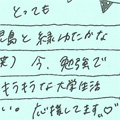 とっても
児島と緑ゆたかな
笑) 今、勉強で
キラキラな大学生活
い。応援してます♡